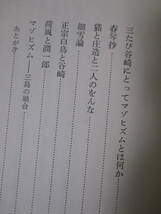 三たび谷崎にとってマゾヒズムとは何か
春琴抄
猫と庄造と二人のをんな
細雪論
正宗白鳥と谷崎
荷風と潤一郎
マゾヒズム——三島の場合
あとがき